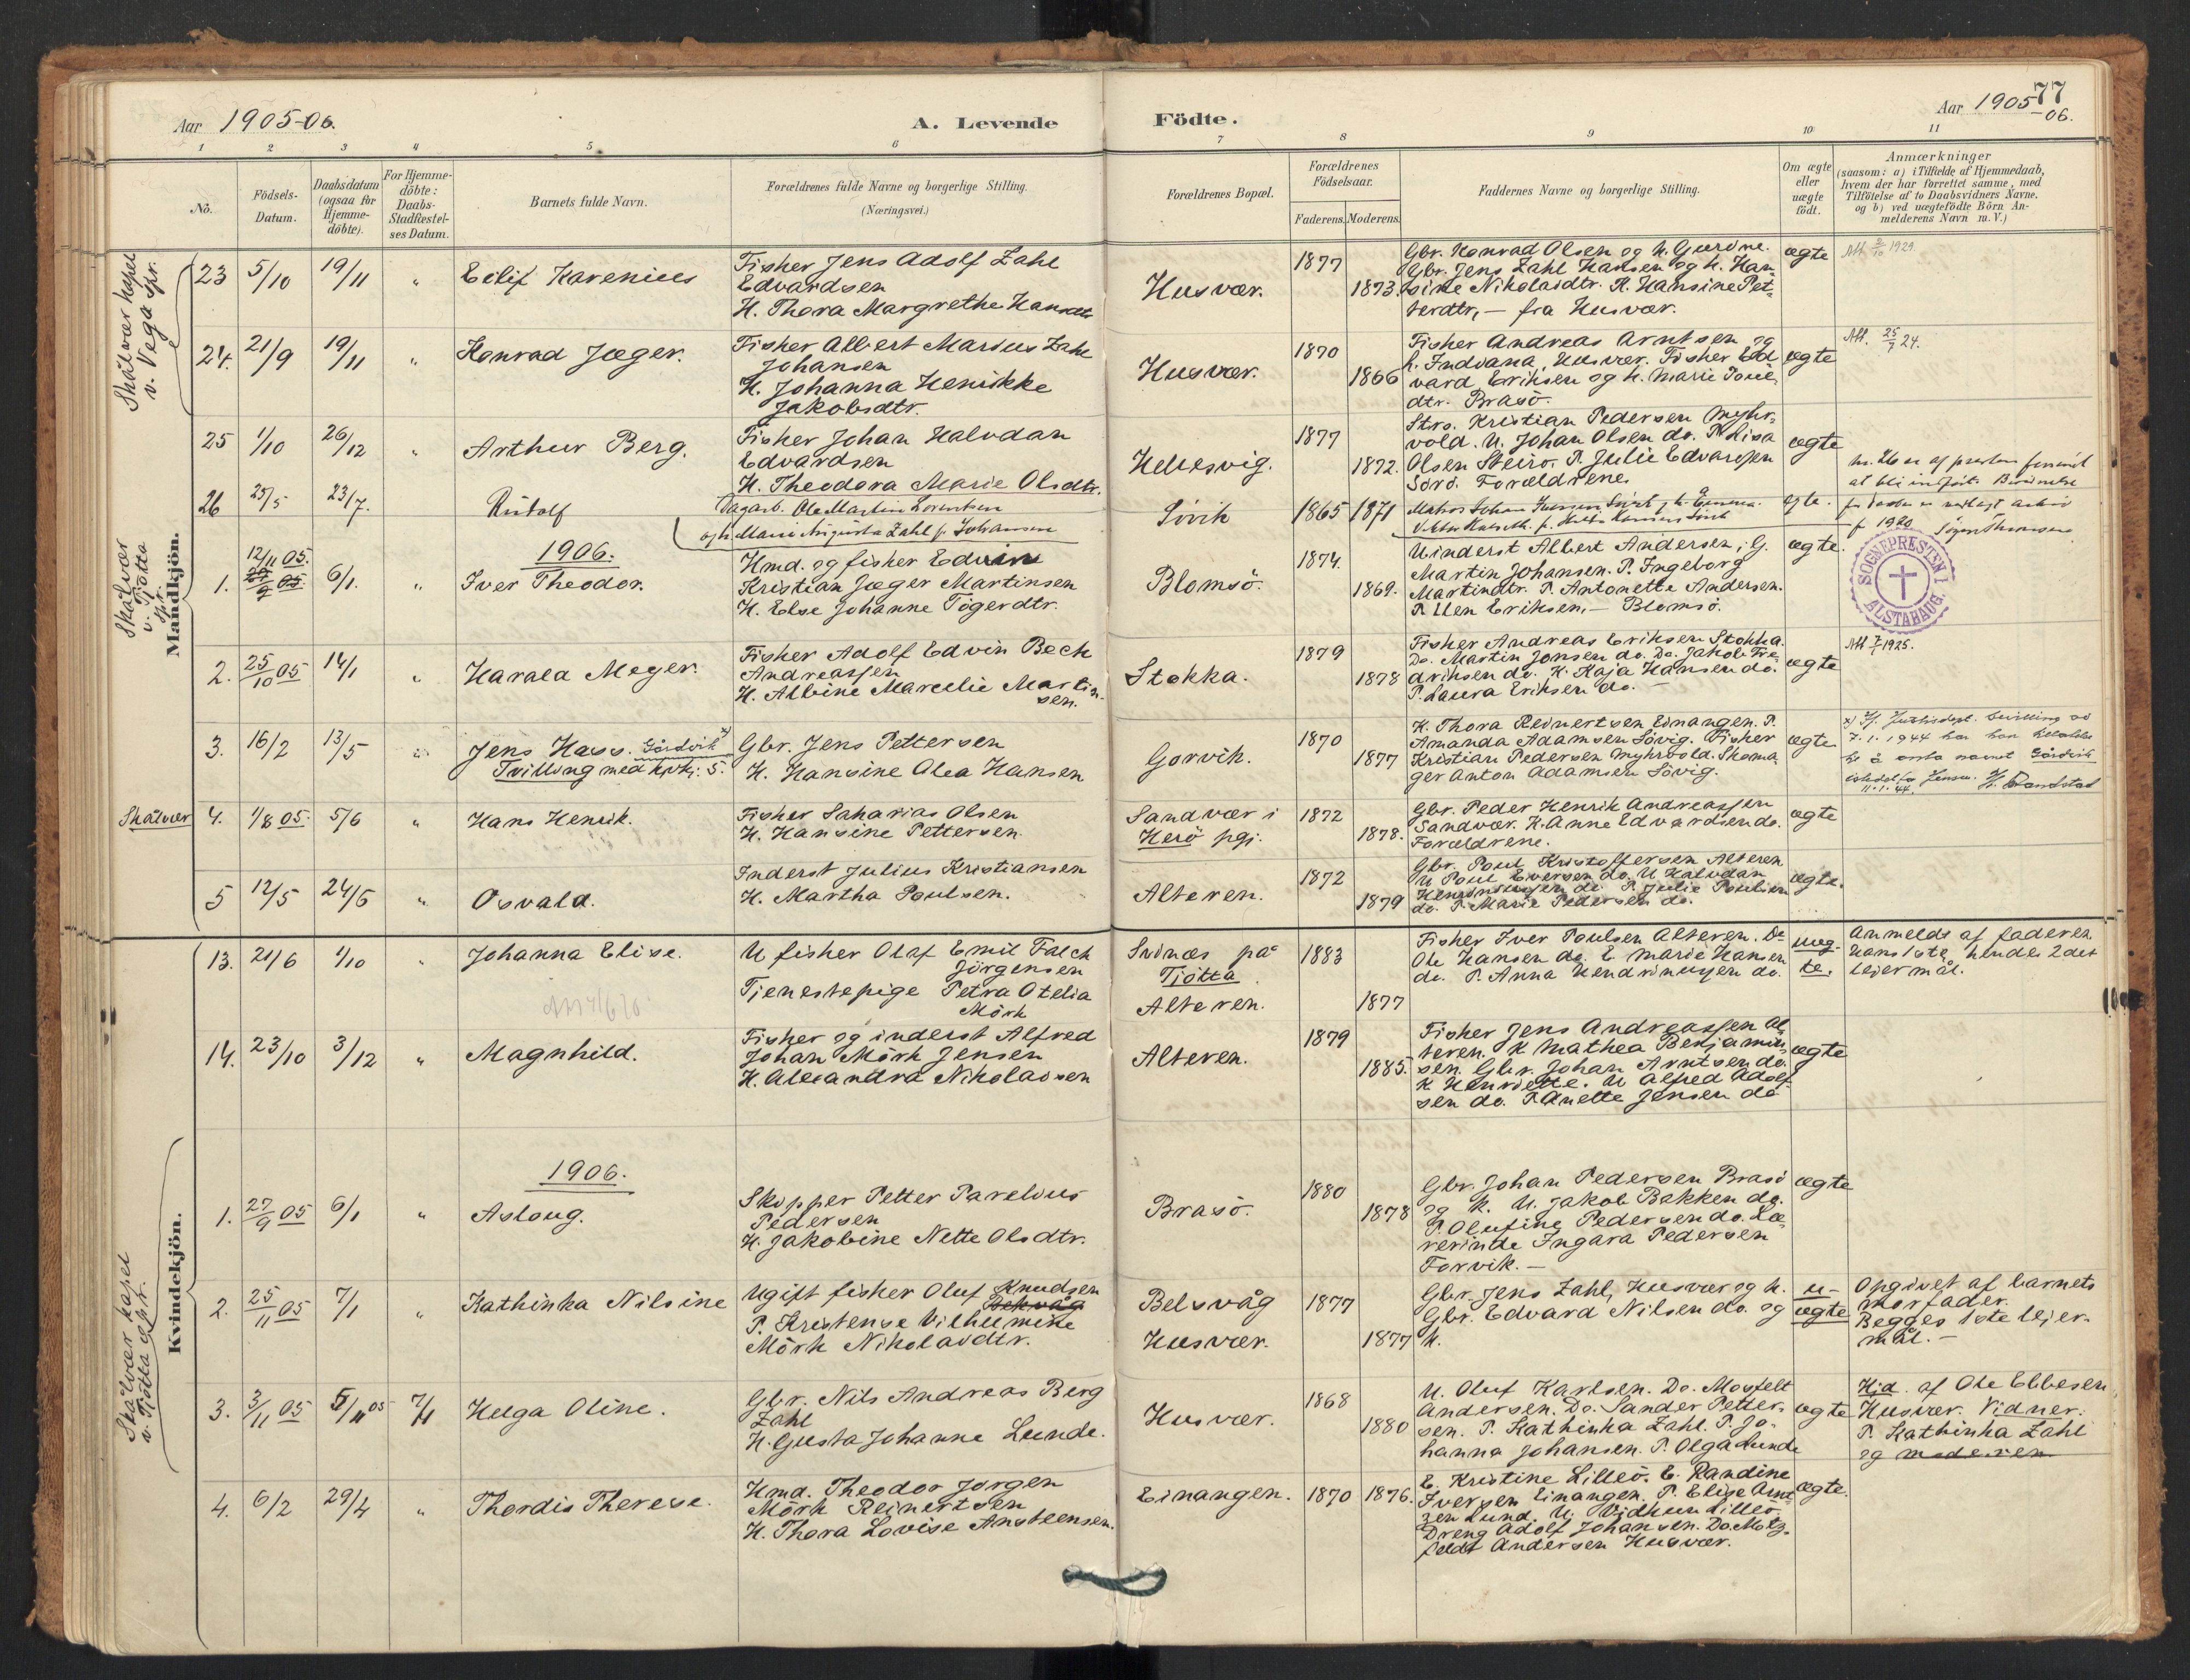 Aar 1905-06.
A. Levende Födte.
Aar 1905-06.
77
1 2 3 4 5 6 7 8 9 10 11
No.
Födsels-Datum.
Daabsdatum (ogsaa for Hjemme-döbte).
For Hjemme-döbte: Daabs-Stadfæstel-ses Datum.
Barnets fulde Navn.
Forældrenes fulde Navne og borgerlige Stilling.
(Næringsvei.)
Forældrenes Bopæl.
Forældrenes Födselsaar.
Faderens. Moderens.
Faddernes Navne og borgerlige Stilling.
Om ægte eller uægte födt.
Anmærkninger
(saasom: a) i Tilfælde af Hjemmedaab,
hvem der har forrettet samme, med
Tilföielse af to Daabsvidners Navne.
og b) ved uægtefödte Börn An-
melderens Navn m. V.)
Skålvær kapel
v. Vega spr.
23 5/10 19/11 " Eilif Karenius
Fisker Jens Adolf Zahl
Edvardsen
H. Thora Margrethe Hansdtr
Husvær.
1877
1873.
Gbr. Konrad Olsen og h. Gurine.
Gbr. Jens Zahl Hansen og h. Han-
sine Nikolaidtr. K. Hansine Pet-
terdtr, — fra Husvær.
ægte
Att. 1929
24. 21/9 19/11 " Konrad Jæger.
Fisker Albert Marius Zahl
Johansen
H. Johanna Henrikke
Jakobsdtr.
Husvær.
1870
1866
Fisker Andreas Arntsen og
h. Indiana, Husvær. Fisker Ed
vard Eriksen og h. Marie
dtr. Brasö.
ægte
Att. 25/7 24.
25 1/10 26/12 " Arthur Berg.
Fisker Johan Halvdan
Edvardsen
H. Theodora Marie Olsdtr.
Hellesvig.
1877
1872.
Strs. Kristian Pedersen Myhr-
vold. U. Johan Olsen do. P. Lisa
Olsen Steiro. P. Julie Edvardsen
Sörö. Forældrene
ægte
26 25/5 23/7. Rudolf
Dagarb. Ole Martin Lorentsen
og h. Marie Augusta Zahl f. Johansen
Sövik
1865 1871
ægte.
f 1920
SOGNEPRESTEN I ALSTAHAUG.
Skålvær
v. Tjötta
spr.
Mandkjön.
1906.
1. 12/11 05. 6/1. " Iver Theodor.
Hmd. og fisker Edvin
Kristian Jæger Martinsen
H. Else Johanne Tögerdtr.
Blomsö.
1874.
1869.
Uinderst Albert Andersen, G.
Martin Johansen. P. Ingeborg
Martindtr. P. Antonette Andersen.
P. Ellen Eriksen, — Blomsö.
ægte.
2. 25/10 05 14/1 " Harald Meyer.
Fisker Adolf Edvin Bech
Andreassen
H. Albine Marcelie Martin-
sen.
Stokka.
1879
1878
Fisker Andreas Eriksen Stokka.
Do. Martin Jonsen do. Do. Jakob Fre-
driksen do. K. Kaja Hansen do.
P. Laura Eriksen do. —
ægte
Att 7/1 1925.
3. 16/2 13/5 " Jens Hass. Gårdvik x)
Tvilling med kvkj. 5.
Gbr. Jens Pettersen
H. Hansine Olea Hansen
Gorvik.
1870
1877
K. Thora Reinertsen Einangen. P.
Amanda Adamsen Sövig. Fisker
Kristian Pedersen Myhrvold. Skoma-
ger Anton Adamsen Sövig.
ægte
x) If. Justisdept. bevilling av
7.1.1944 har han tillatelse
til å anta navnet Gårdvik
istedetfor Jensen.
11.1.44.
Skålvær
4. 1/8 05. 5/6 " Hans Henrik.
Fisker Saharias Olsen
H. Hansine Pettersen
Sandvær i
Herö pgj.
1872
1878.
Gbr. Peder Henrik Andreassen
Sandvær. K. Anne Edvardsen do.
Forældrene.
ægte
5 12/5 24/6 " Osvald.
Inderst Julius Kristiansen
H. Martha Poulsen.
Alteren.
1872
1879
Gbr. Poul Kristoffersen Alteren
U Poul Eversen do. U Halvdan
do P. Julie Poulsen
do. P. Marie Pedersen do.
ægte.
13. 21/6 1/10 " Johanna Elise.
U fisker Olaf Emil Falch
Jörgensen
Tjenestepige Petra Otelia
Mörk
Svinæs på
Tjötta
Alteren.
1883
1877
Fisker Iver Poulsen Alteren. Do
Ole Hansen do. E. Marie Hansen
do. P. Anna Hendriksen do.
uæg-
te.
Anmeldt af faderen
Hans 1ste, hendes 2det
leiermål.
14. 23/10 3/12 " Magnhild.
Fisker og inderst Alfred
Johan Mörk Jensen
H. Alexandra Nikolaisen
Alteren.
1879
1885.
Fisher Jens Andreassen Al-
teren. K Mathea Benjamin-
sen. Gbr. Johan Arntsen do.
K Henriette. U Alfred Adolf
sen do. P. Anette Jensen do
ægte
Kvindekjön.
Skålvær kapel
v. Tjötta spr.
1906.
1. 27/9 05 6/1 " Aslaug.
Skipper Petter Parelius
Pedersen
H. Jakobine Nette Olsdtr.
Brasö.
1880
1878
Gbr. Johan Pedersen Brasö
og h. U. Jakob Bakken do.
P. Olufine Pedersen do. Læ-
rerinde Ingara Pedersen
Forvik. —
ægte
2. 25/11 05 7/1 " Kathinka Nilsine
Ugift fisker Oluf Knudsen
P. Kristense Vilhelmine
Mörk Nikolaidtr.
Belsvåg
Husvær.
1877
1877
Gbr. Jens Zahl, Husvær og h.
Gbr. Edvard Nilsen do. og
h.
u-
ægte
Opgivet af barnets
morfader.
Begges 1ste leier-
mål. —
3. 3/11 05 5/11 05 7/1 Helga Oline.
Gbr. Nils Andreas Berg
Zahl
H. Gusta Johanne Lunde.
Husvær.
1868
1880
U. Oluf Karlsen. Do. Mosfelt
Andersen. Do. Sander Petter-
sen. P. Kathinka Zahl. P. Jo-
hanna Johansen. P. Olga Lunde
ægte
Hjd. af Ole Ebbesen
Husvær. Vidner:
P. Kathinka Zahl
og moderen
4. 6/2 29/4 " Thordis Therese.
Hmd. Theodor Jörgen
Mörk Reinertsen
H. Thora Lovise Ansteensen.
Einangen.
1870 1876.
E. Kristine Lilleö. E. Randine
Iversen Einangen. P. Elise Arnt-
zen Lund. U. Vidkun Lilleö.
Dreng Adolf Johansen. Do. Motz-
feldt Andersen Husvær.
ægte.